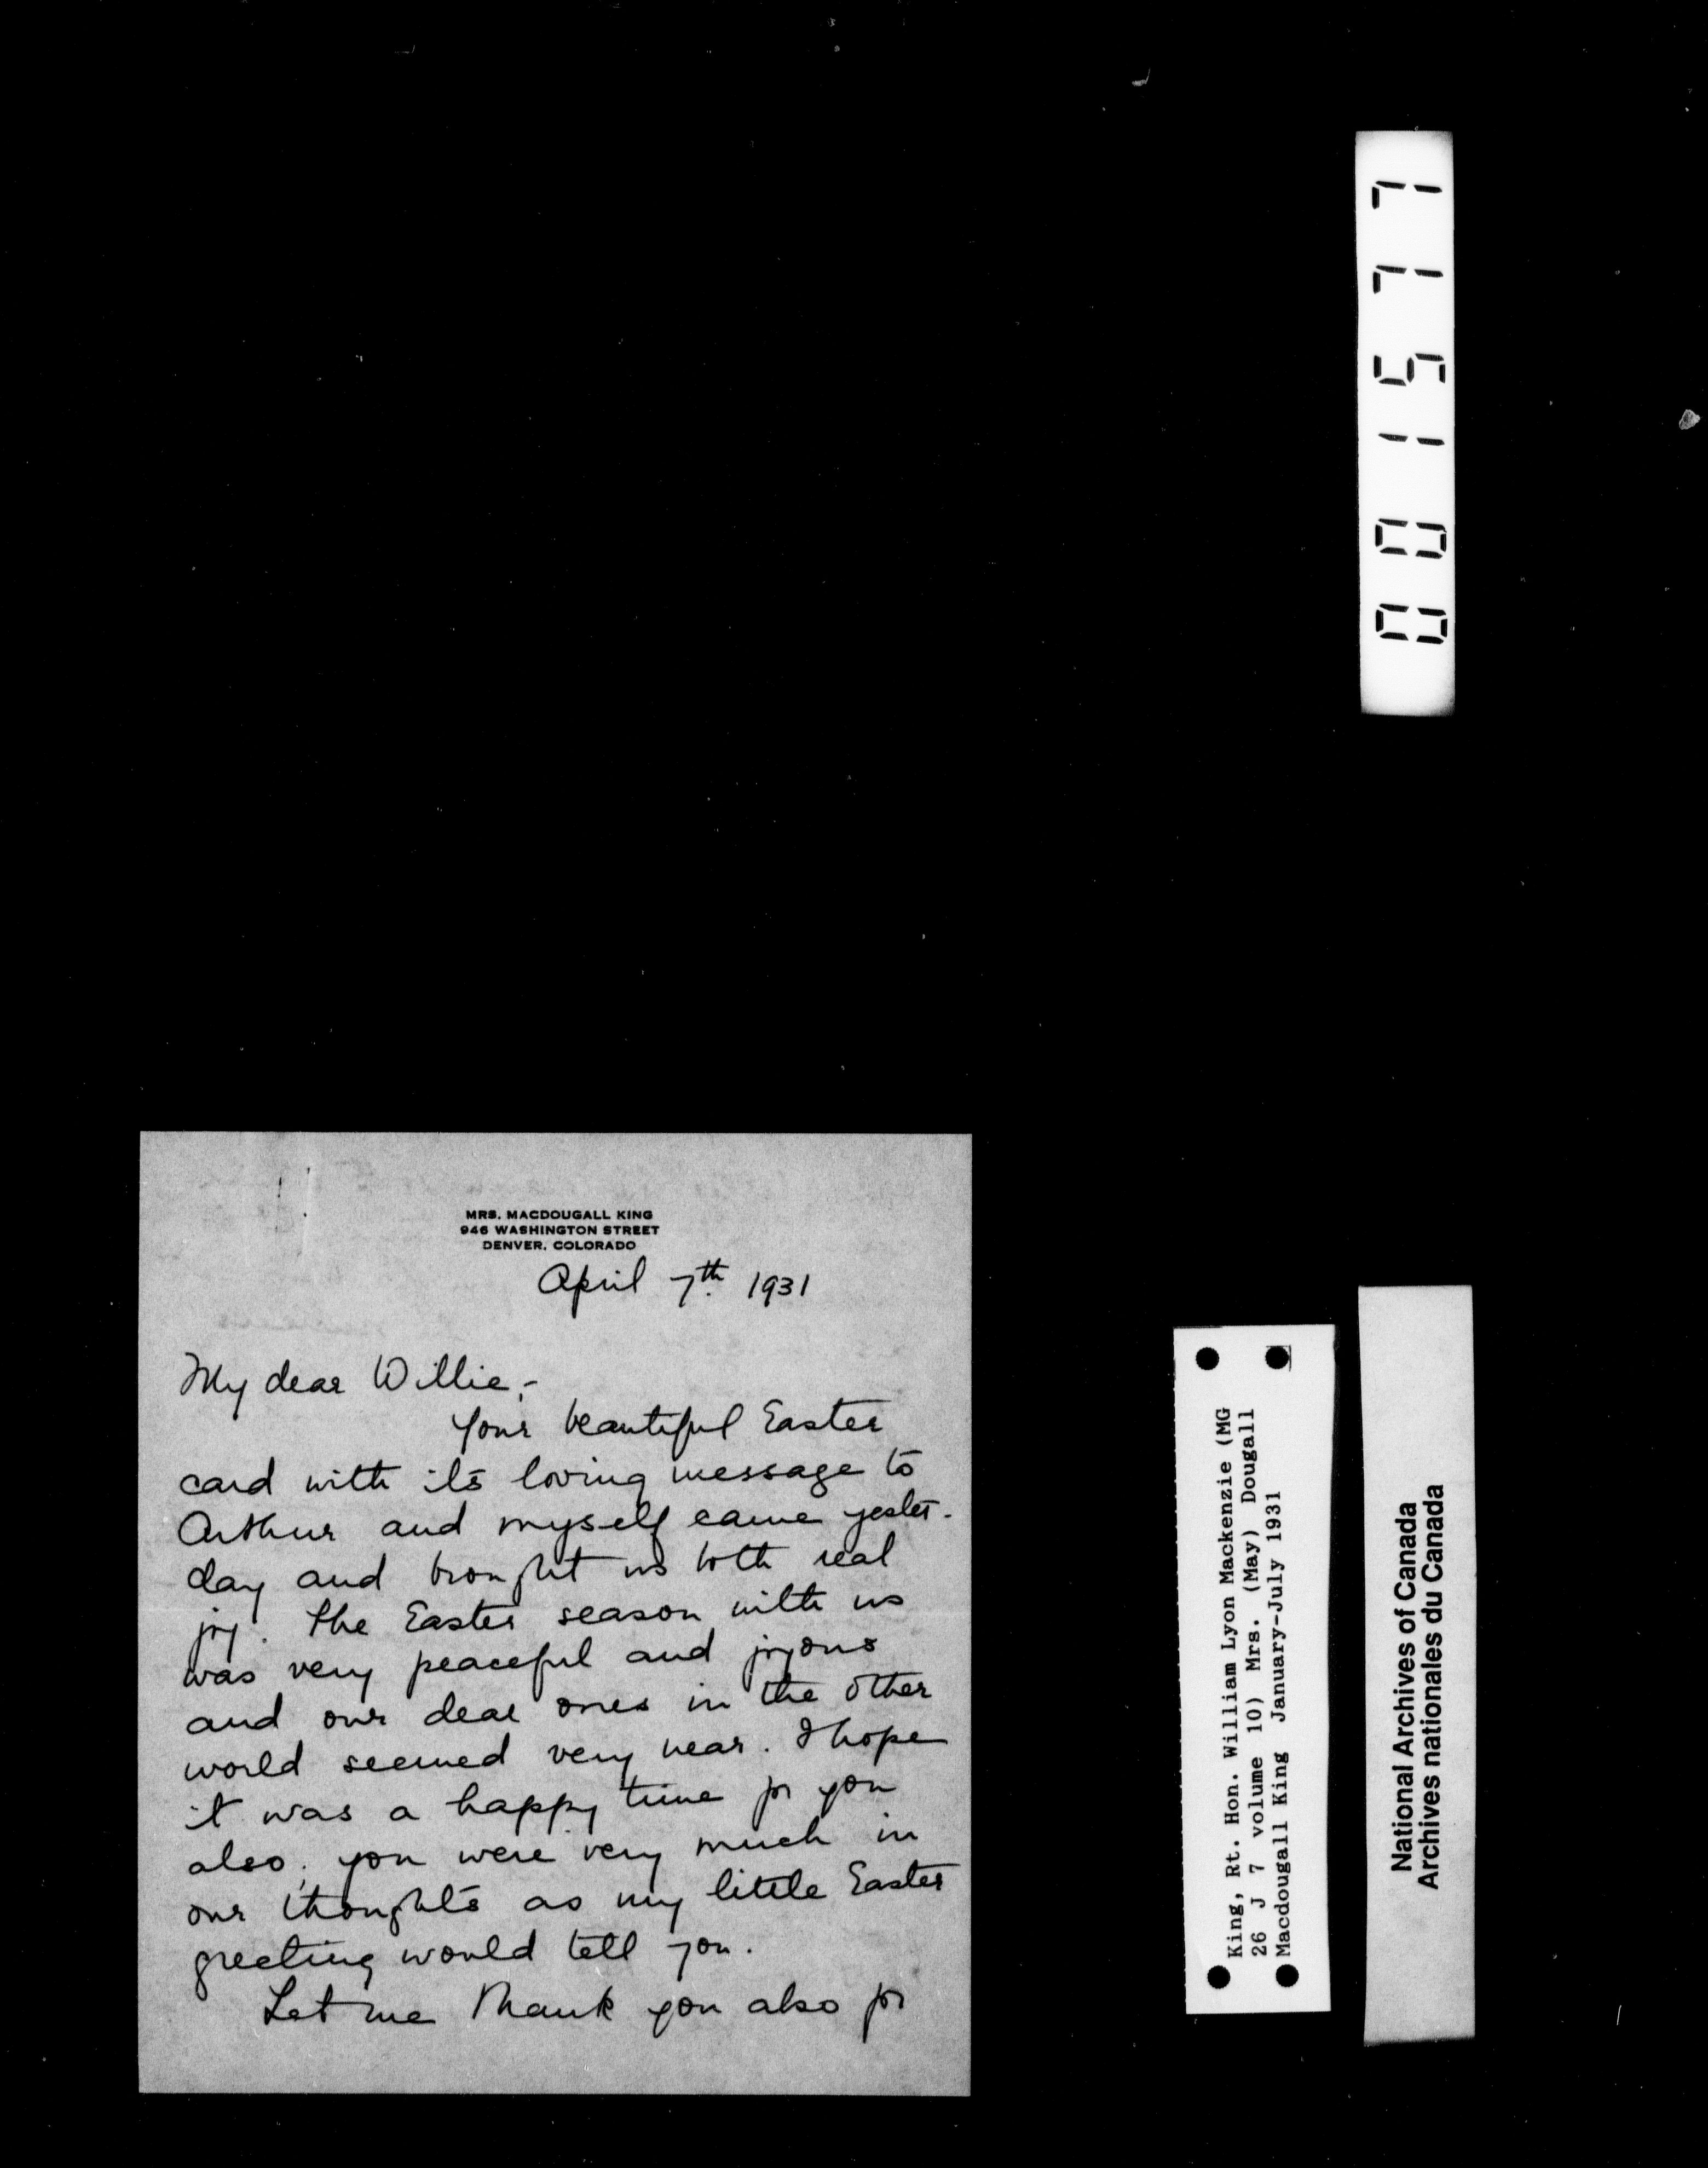 MRS. MACDOUGALL KING
946 WASHINGTON STREET
DENVER, COLORADO
April 7th. 1931
My dear Willie,-
Your beautiful Easter
card with its loving message to
Arthur and myself came yester-
day and brought us both real
joy. The Easter season with us
was very peaceful and joyous
and our dear ones in the other
world seemed very near. I hope
it was a happy time for you
also. you were very much in
our thoughts as my little Easter
greeting would tell you.
Let me thank you also for
001577
King, Rt. Hon. William Lyon Mackenzie (MG
26 J 7 volume 10) Mrs. (May) Dougall
Macdougall King January-July 1931
National Archives of Canada
Archives nationales du Canada